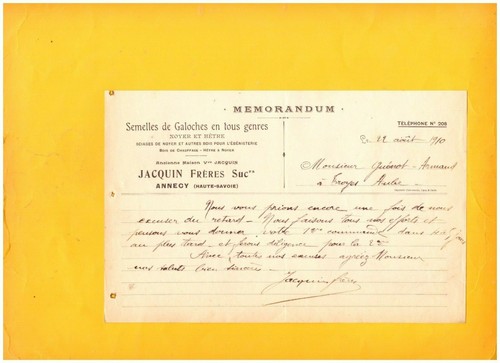 · MEMORANDUM ·
Semelles de Galoches en tous genres
NOYER ET HÊTRE
SCIAGES DE NOYER ET AUTRES BOIS POUR L'ÉBÉNISTERIE
BOIS DE CHAUFFAGE - HÊTRE & NOYER
Ancienne Maison Vve JACQUIN
JACQUIN FRÈRES Succrs
ANNECY (HAUTE-SAVOIE)
TÉLÉPHONE N° 208
22 août 1910
Monsieur Guérot-
à Troyes Aube
Nous vous prions encore une fois de nous
excuser du retard - Nous faisons tous nos efforts et
pensons vous donner votre 1ère commande dans 4 à 5 jours
au plus tard et ferons diligence pour la 2e
Avec toutes nos excuses agréez Monsieur
nos saluts bien sincères -
Jacquin frères